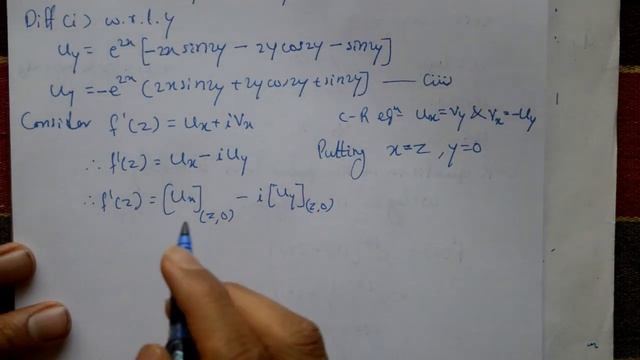 Diff (i) w.r.t.y
Uy = e^{2x} [-2x sin2y - 2y cos2y - sin2y]
Uy = -e^{2x} (2x sin2y + 2y cos2y + sin2y] — (iii)
Consider f'(z) = Ux + iVx C-R eqⁿ Ux = Vy & Vx = -Uy
∴ f'(z) = Ux - iUy Putting x = z, y = 0
∴ f'(z) = [Ux](z,0) - i[Uy](z,0)